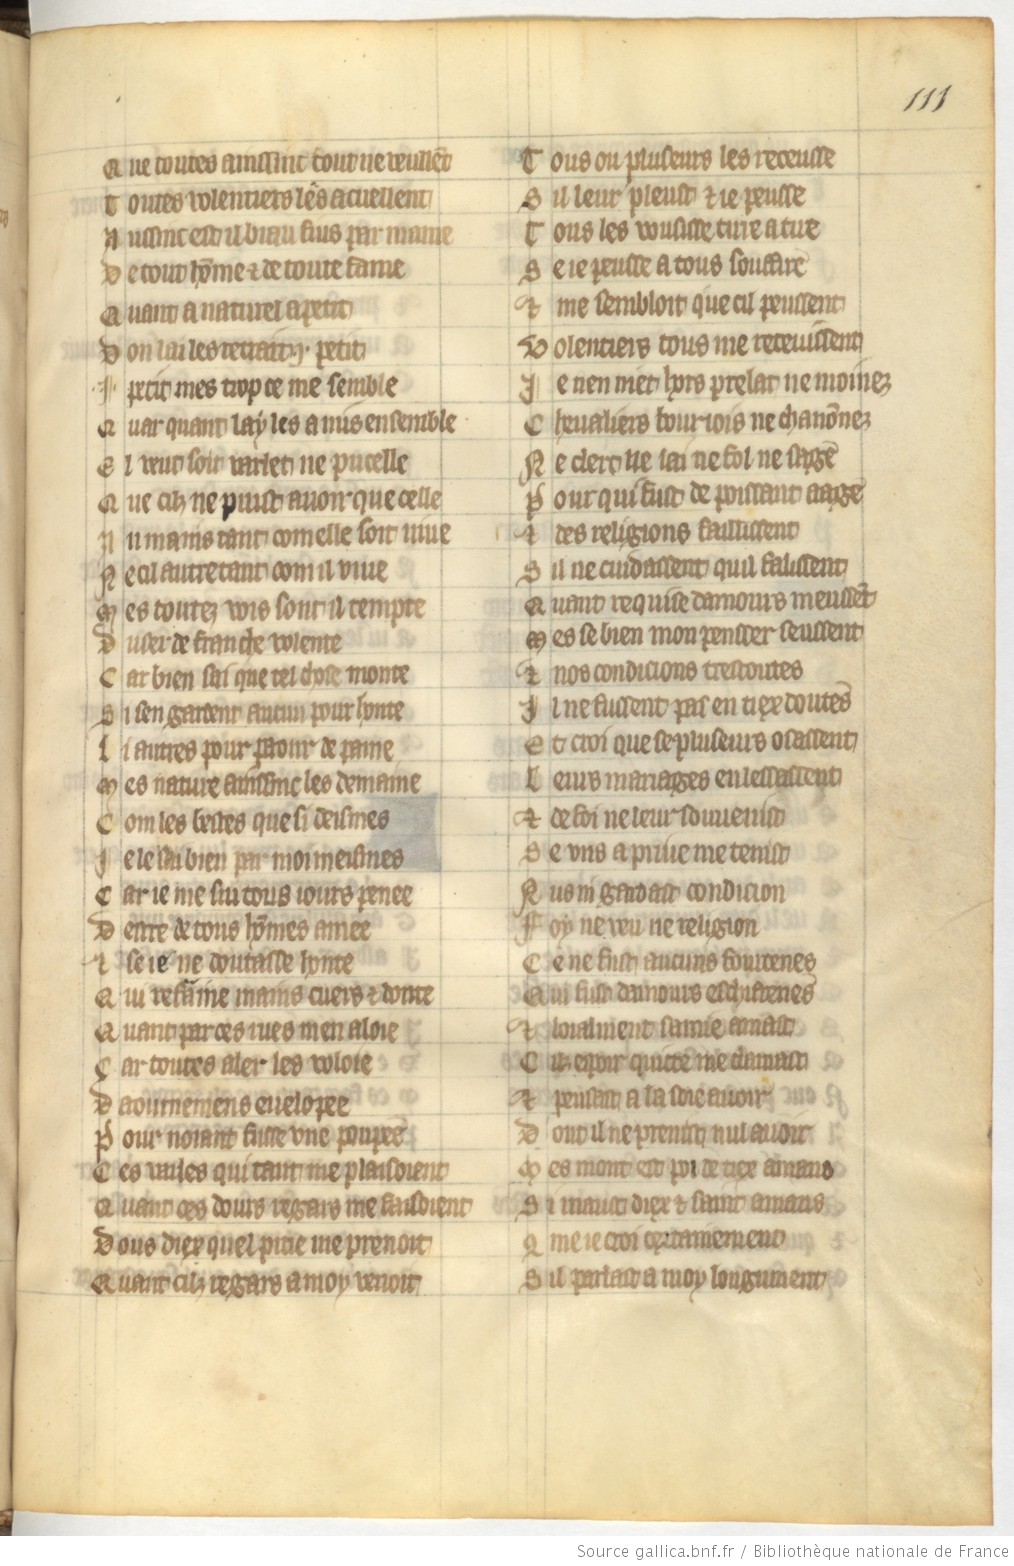 111
Que toutes ainssinc tout ne veullẽt
Toutes volentiers les acuellent
Aussinc est il biau fius par mame
De tout hõme ⁊ de toute fame
Quant a naturel apetit
Don lai les retrait petit
petit mes trop ce me semble
Quar quant lay les a mis ensemble
El veut soit varlet ne pucelle
Que cilz ne puist auoir que celle
Au mains tant com elle soit uiue
Ne cil autre tant com il viue
Mes toutez vois sont il tempte
Duser de franche volente
Car bien sai que tel chose monte
Si sen gardent aucun pour honte
Li autres pour paour de paine
Mes nature ainssinc les demaine
Com les bestes que si deismes
Je le sai bien par moi meismes
Car ie me sui tous iours penee
Destre de tous hõmes amee
⁊ se ie ne doutasse honte
Qui refraine mains cuers ⁊ donte
Quant par ces rues men aloie
Car toutes aler les voloie
Daournemens enuelopee
Pour noiant fusse vne poupee
Ces valles qui tant me plaisoient
Quant ces dous regars me faisoient
Dous diex quel pitie me prenoit
Quant cilz regars a moy venoit
Tous ou pluseurs les receusse
Sil leur pleust ⁊ ie peusse
Tous les vousisse tire a tire
Se ie peusse a tous souffire
⁊ me sembloit que cil peussent
Volentiers tous me receuissent
Je nen met hors prelat ne moinez
Cheualiers bouriois ne chanõnez
Ne clerc ne lai ne fol ne sage
Pour qui fust de poissant aage
⁊ des religions faillissent
Sil ne cuidassent quil falissent
Quant requise damours meussẽt
Mes se bien mon pensser seussent
⁊ nos condicions trestoutes
Il ne fussent pas en tiex doutes
Et croi que se pluseurs osassent
Leurs mariages en lessassent
⁊ de foi ne leur souuenist
Se vns a priue me tenist
Nus ni gardast condicion
Foy ne veu ne religion
Ce ne fust aucuns forcenes
Qui fust damours enchifrenes
⁊ loialment samie amast
Cilz espoir quicte me clamast
⁊ pensast a la soie auoir
Dont il ne prenist nul auoir
Mes mont est poi de tiex amans
Si maist diex ⁊ saint amans
9me ie croi certainement
Sil parlast a moy longuement